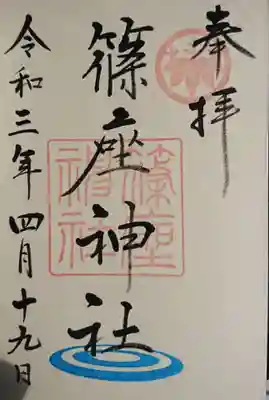 奉拝
篠座神社
令和三年四月十九日
篠座
神社